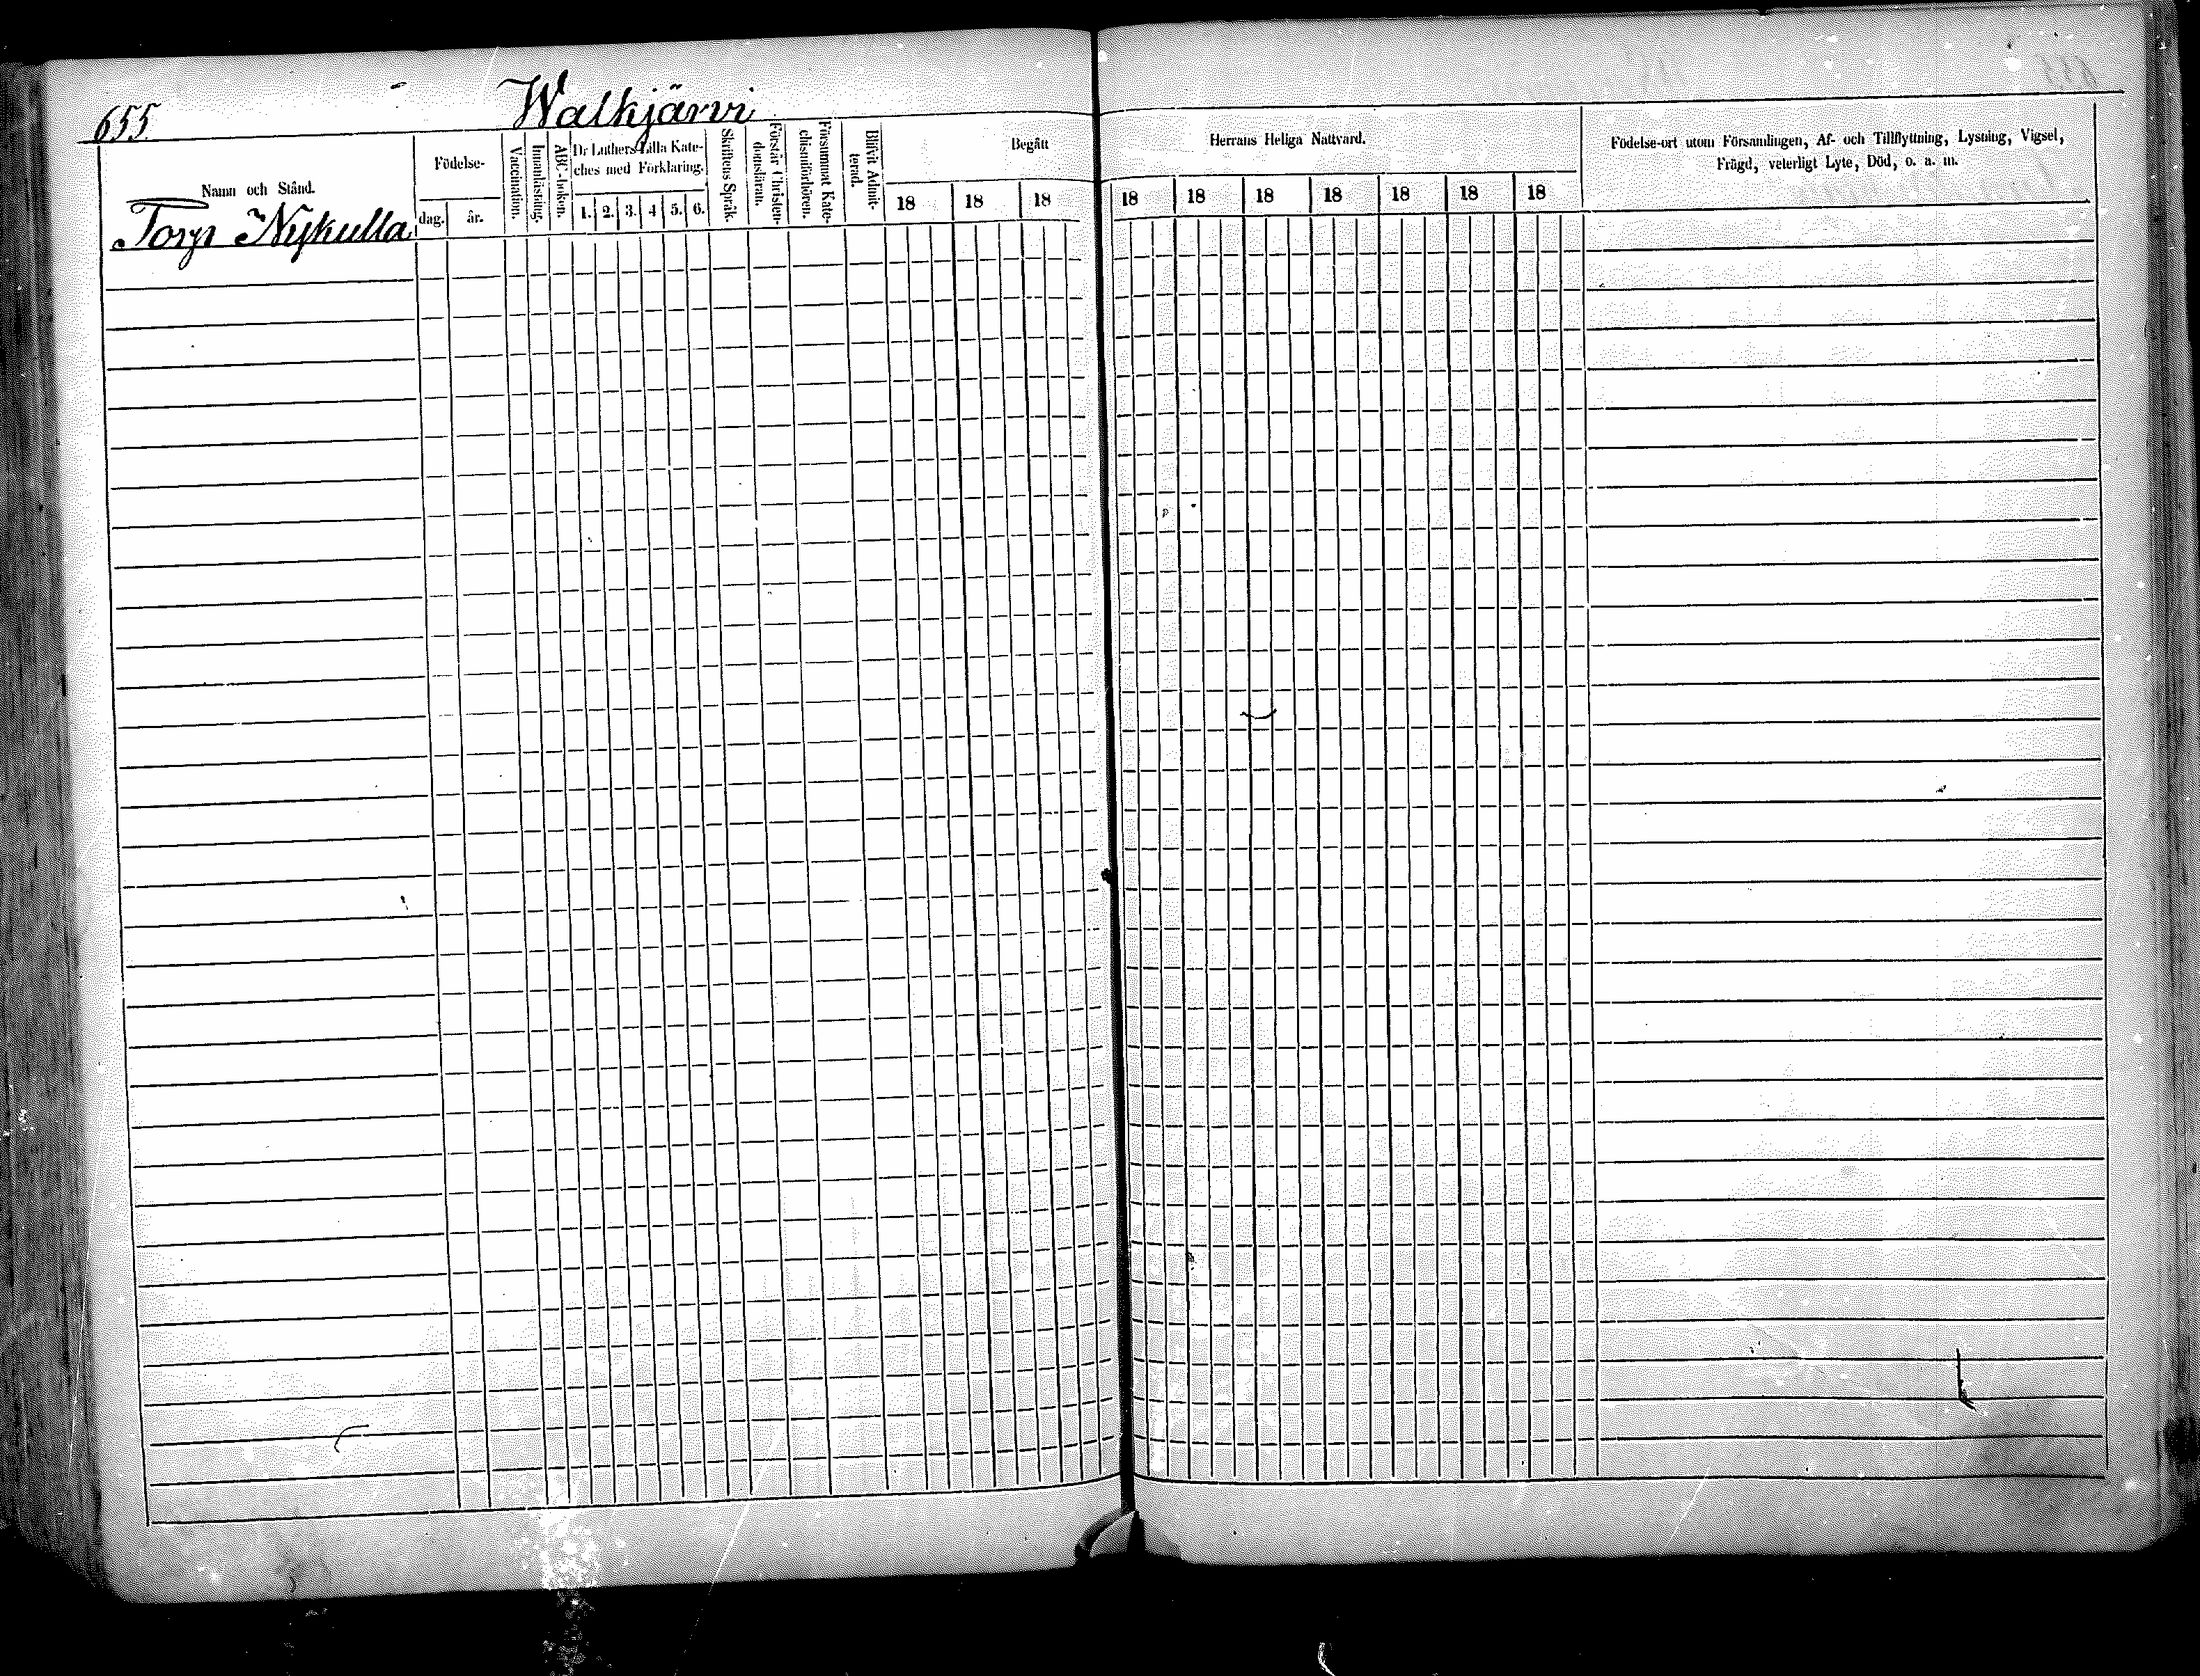 655
Walkjärvi
Namn och Stånd.
Födelse-
dag.
år.
Vaccination.
Innanläsning.
ABC-boken.
Dr Luthers Lilla Kate-
ches med Förklaring.
1. 2. 3. 4 5. 6.
Skriftens Språk.
Förstår Christen-
domsläran.
Försummat Kate-
chismiförhören.
Blifvit Admit-
terad.
Begått
18 18 18
Herrans Heliga Nattvard.
18 18 18 18 18 18 18
Födelse-ort utom Församlingen, Af- och Tillflyttning, Lysning, Vigsel,
Frägd, veterligt Lyte, Död, o. a. m.
Torp Nykulla